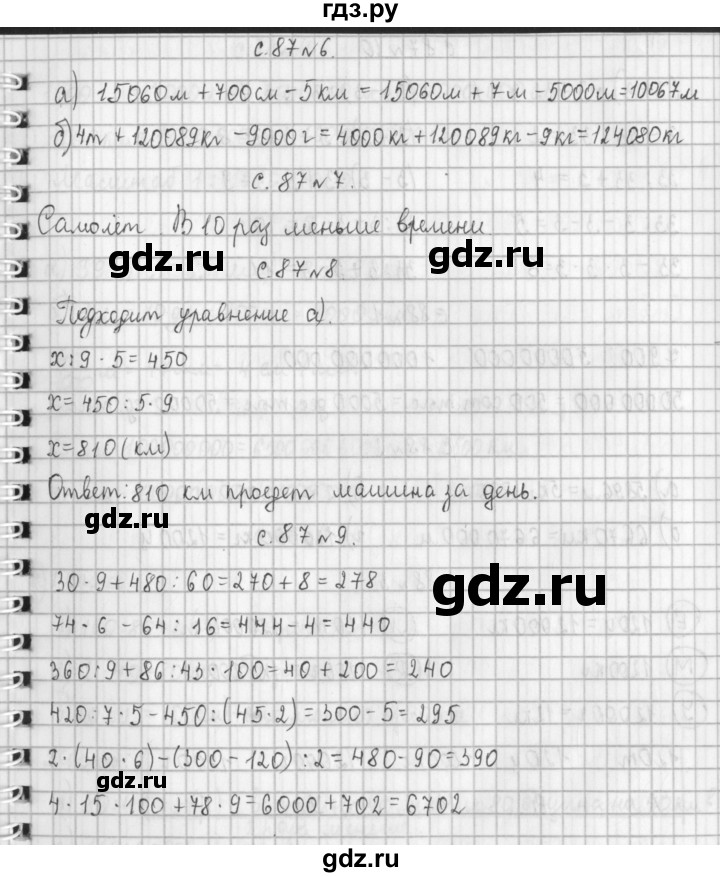 гдз.ру
с.87№6.
а) 15060м + 700см - 5км = 15060м + 7м - 5000м = 10067м
б) 4т + 120089кг - 9000г = 4000кг + 120089кг - 9кг = 124080кг
с.87№7.
Самолёт. В 10 раз меньше времени
gdz.ru gdz.ru
с.87№8.
Подходит уравнение а).
х:9·5=450
х=450:5·9
х=810(км)
Ответ: 810 км проедет машина за день.
gdz.ru
с.87№9.
30·9+480:60=270+8=278
gdz.ru
74·6-64:16=444-4=440
360:9+86:43·100=40+200=240
420:7·5-450:(45·2)=300-5=295
2·(40·6)-(300-120):2=480-90=390
gdz.ru
4·15·100+78·9=6000+702=6702
gdz.ru